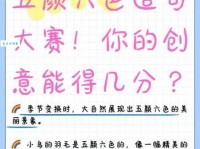 五颜六色造句
大赛！你的创
意能得几分？
季节变换时，大自然展现出五颜六色的美
丽景象。
小鸟的羽毛是五颜六色的，像一幅精美的